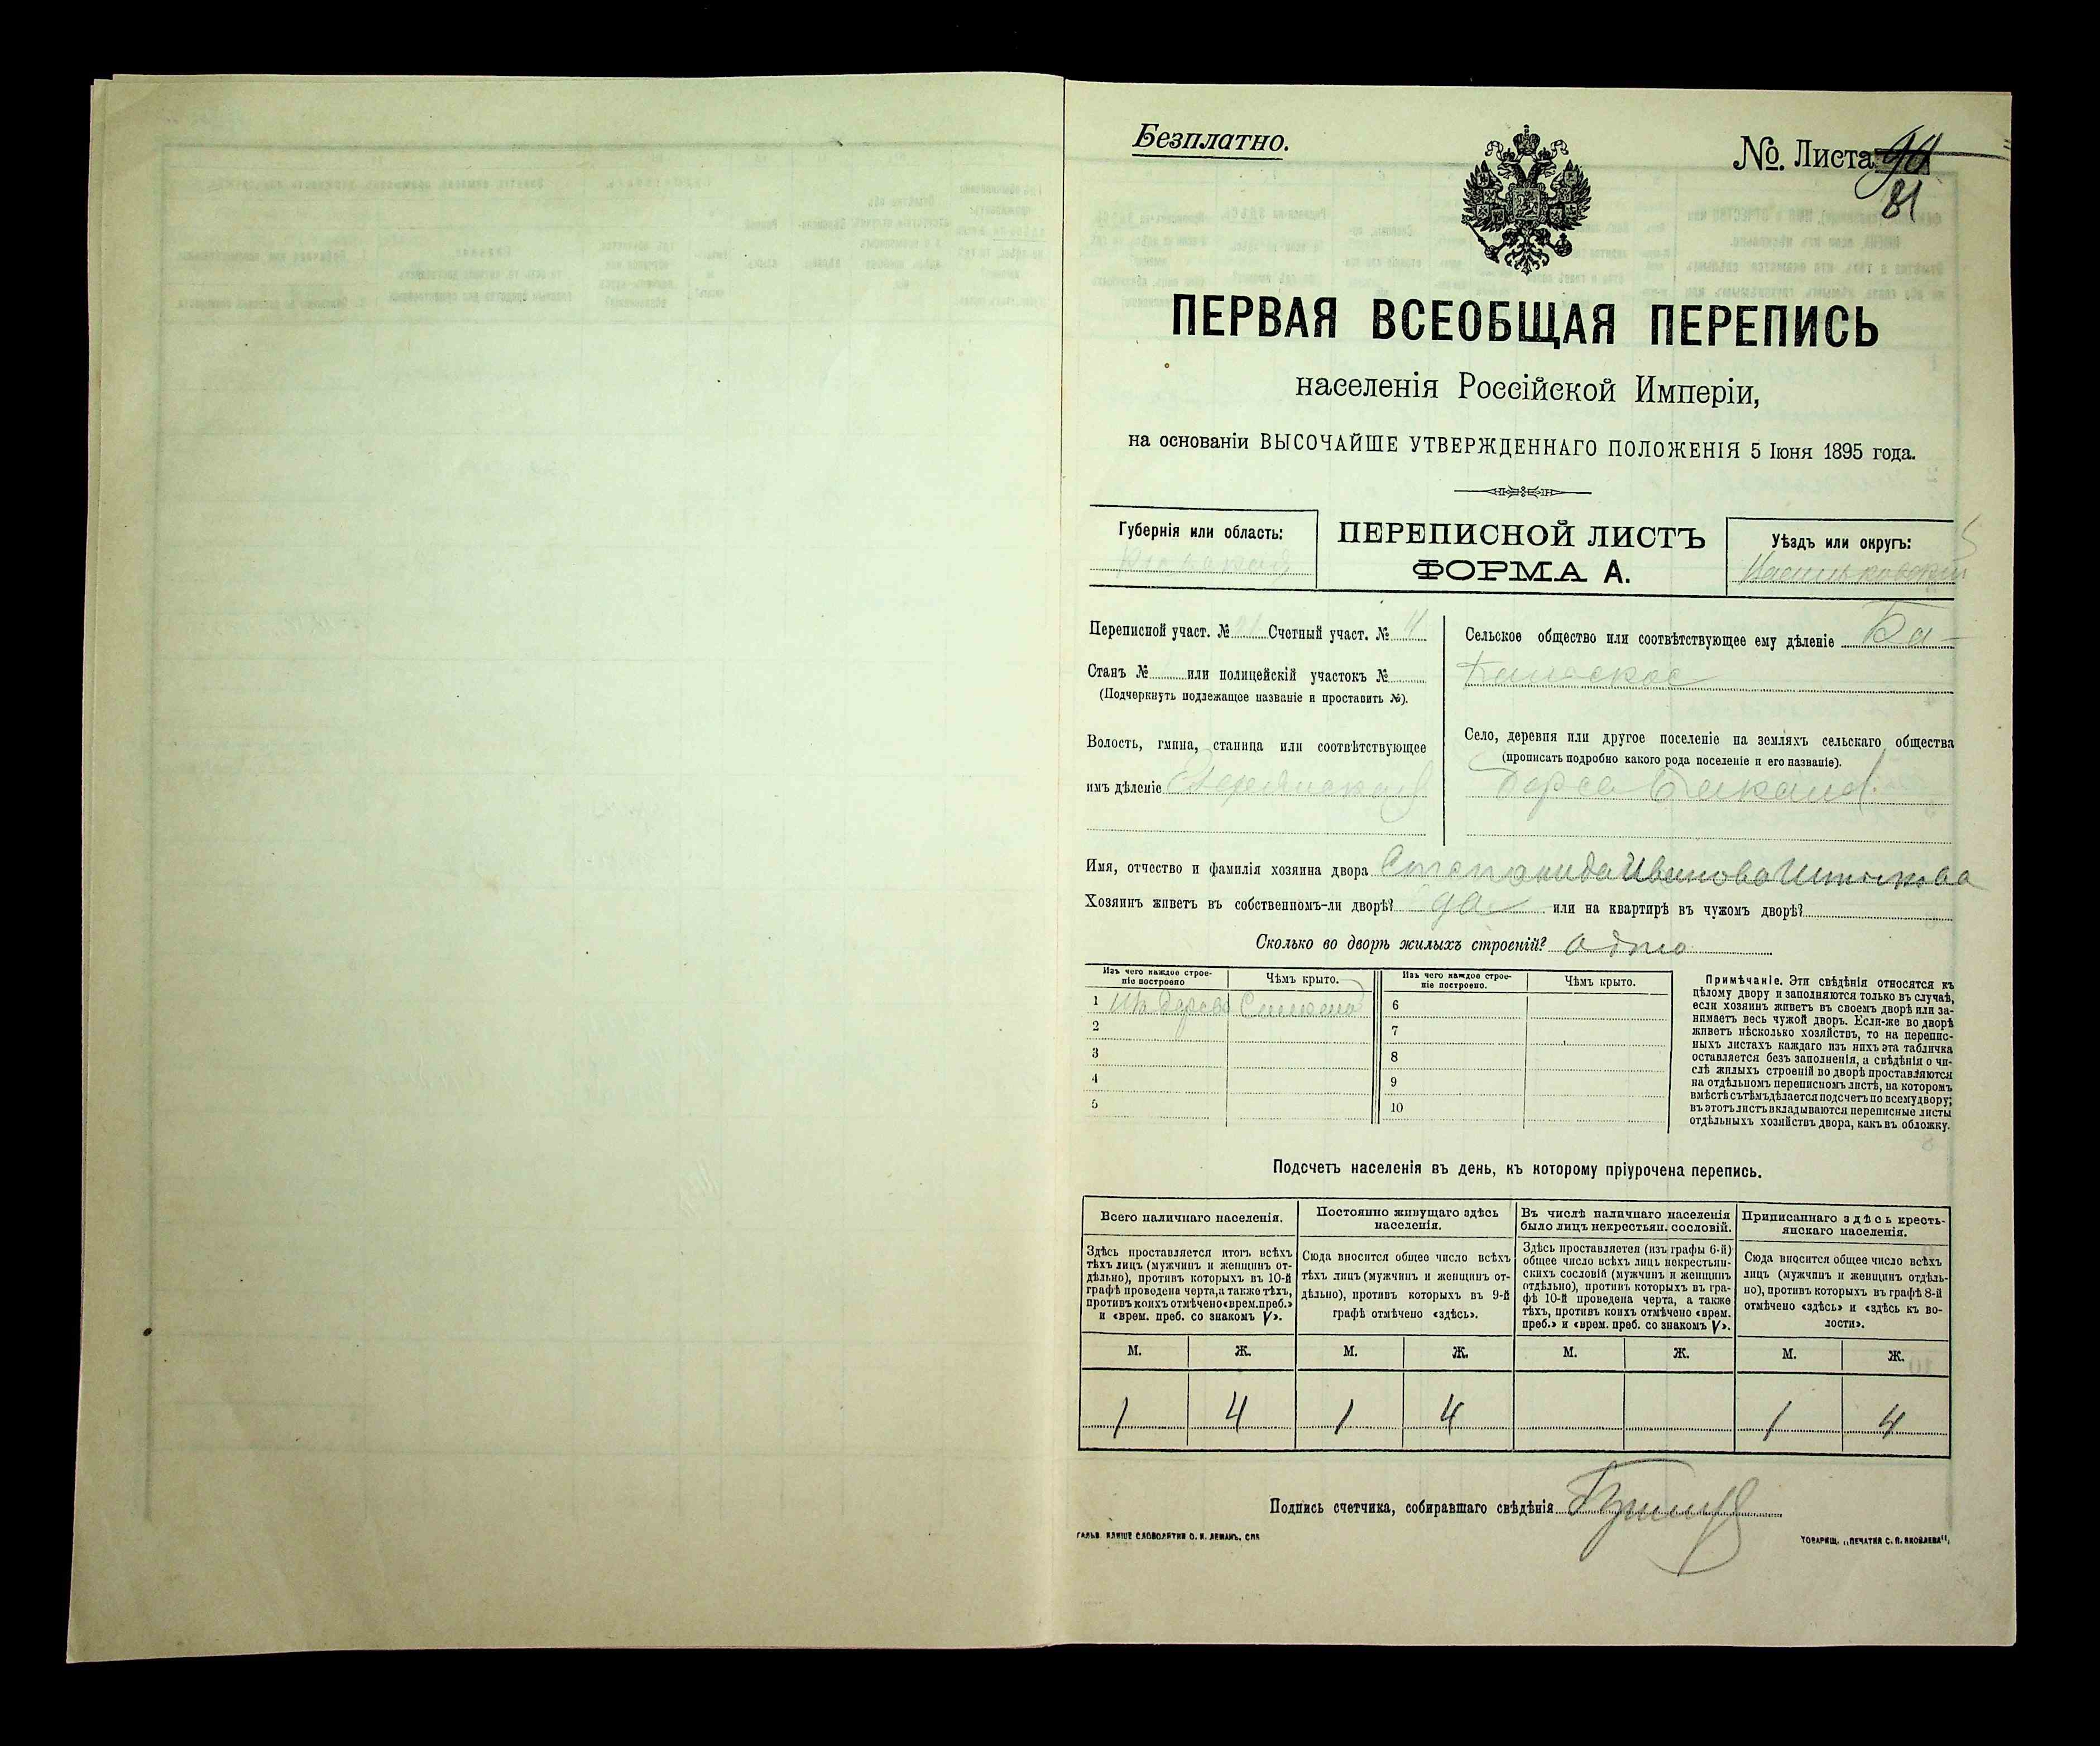 Безплатно.
№. Листа 90
81
ПЕРВАЯ ВСЕОБЩАЯ ПЕРЕПИСЬ
населенія Россійской Имперіи,
на основаніи ВЫСОЧАЙШЕ УТВЕРЖДЕННАГО ПОЛОЖЕНІЯ 5 Іюня 1895 года.
Губернія или область:
ПЕРЕПИСНОЙ ЛИСТЪ
ФОРМА А.
Уѣздъ или округъ:
Васильковскій
Переписной участ. № Счетный участ. № 4
Станъ № или полицейскій участокъ №
(Подчеркнуть подлежащее названіе и проставить №).
Волость, гмина, станица или соотвѣтствующее
имъ дѣленіе
Сельское общество или соотвѣтствующее ему дѣленіе Ба-
Село, деревня или другое поселеніе на земляхъ сельскаго общества
(прописать подробно какого рода поселеніе и его названіе).
Имя, отчество и фамилія хозяина двора Степанида Иванова
Хозяинъ живетъ въ собственномъ-ли дворѣ? да или на квартирѣ въ чужомъ дворѣ?
Сколько во дворѣ жилыхъ строеній? одно
Изъ чего каждое строе-
ніе построено
Чѣмъ крыто.
Изъ чего каждое строе-
ніе построено.
Чѣмъ крыто.
1 Изъ дерева Солома
6
2
7
3
8
4
9
5
10
Примѣчаніе. Эти свѣдѣнія относятся къ
цѣлому двору и заполняются только въ случаѣ,
если хозяинъ живетъ въ своемъ дворѣ или за-
нимаетъ весь чужой дворъ. Если-же во дворѣ
живетъ нѣсколько хозяйствъ, то на перепис-
ныхъ листахъ каждаго изъ нихъ эта табличка
оставляется безъ заполненія, а свѣдѣнія о чи-
слѣ жилыхъ строеній во дворѣ проставляются
на отдѣльномъ переписномъ листѣ, на которомъ
вмѣстѣ съ тѣмъ дѣлается подсчетъ по всему двору;
въ этотъ листъ вкладываются переписные листы
отдѣльныхъ хозяйствъ двора, какъ въ обложку.
Подсчетъ населенія въ день, къ которому пріурочена перепись.
Всего наличнаго населенія.
Здѣсь проставляется итогъ всѣхъ
тѣхъ лицъ (мужчинъ и женщинъ от-
дѣльно), противъ которыхъ въ 10-й
графѣ проведена черта, а также тѣхъ,
противъ коихъ отмѣчено «врем. преб.»
и «врем. преб. со знакомъ V».
Постоянно живущаго здѣсь
населенія.
Сюда вносится общее число всѣхъ
тѣхъ лицъ (мужчинъ и женщинъ от-
дѣльно), противъ которыхъ въ 9-й
графѣ отмѣчено «здѣсь».
Въ числѣ наличнаго населенія
было лицъ некрестьян. сословій.
Здѣсь проставляется (изъ графы 6-й)
общее число всѣхъ лицъ некрестьян-
скихъ сословій (мужчинъ и женщинъ
отдѣльно), противъ которыхъ въ гра-
фѣ 10-й проведена черта, а также
тѣхъ, противъ коихъ отмѣчено «врем.
преб.» и «врем. преб. со знакомъ V».
Приписаннаго здѣсь кресть-
янскаго населенія.
Сюда вносится общее число всѣхъ
лицъ (мужчинъ и женщинъ отдѣль-
но), противъ которыхъ въ графѣ 8-й
отмѣчено «здѣсь» и «здѣсь къ во-
лости».
М. Ж. М. Ж. М. Ж. М. Ж.
1 4 1 4 1 4
Подпись счетчика, собиравшаго свѣдѣнія
ГАЛЬВ. КЛИШЕ СЛОВОЛИТНИ О. И. ЛЕМАНЪ, СПБ
ТОВАРИЩ. „ПЕЧАТНЯ С. П. ЯКОВЛЕВА“,